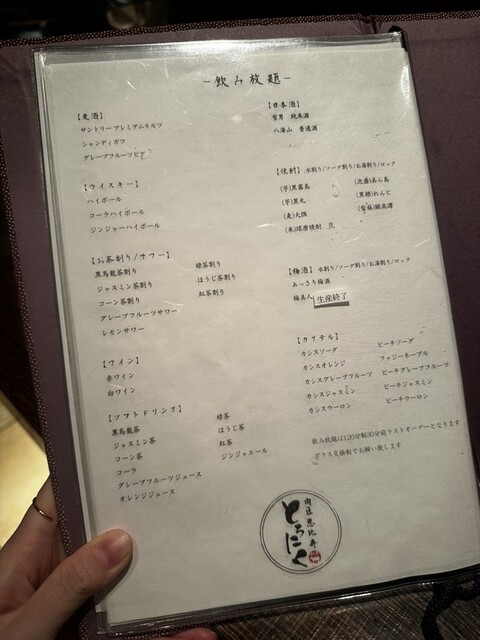 －飲み放題－
【麦酒】
サントリープレミアムモルツ
シャンディガフ
グレープフルーツビア
【ウイスキー】
ハイボール
コーラハイボール
ジンジャーハイボール
【お茶割り/サワー】
黒烏龍茶割り
ジャスミン茶割り
コーン茶割り
グレープフルーツサワー
レモンサワー
緑茶割り
ほうじ茶割り
紅茶割り
【ワイン】
赤ワイン
白ワイン
【ソフトドリンク】
黒烏龍茶
ジャスミン茶
コーン茶
コーラ
グレープフルーツジュース
オレンジジュース
緑茶
ほうじ茶
紅茶
ジンジャエール
【日本酒】
純米酒
八海山 普通酒
【焼酎】水割り/ソーダ割り/お湯割り/ロック
(芋)黒霧島
(芋)黒丸
(麦)大隅
(米)球磨焼酎
(泡盛)あら島
(黒糖)れんと
(紫蘇)鍛高譚
【梅酒】水割り/ソーダ割り/お湯割り/ロック
あっさり梅酒
梅美人 生産終了
【カクテル】
カシスソーダ
カシスオレンジ
カシスグレープフルーツ
カシスジャスミン
カシスウーロン
ピーチソーダ
ファジーネーブル
ピーチグレープフルーツ
ピーチジャスミン
ピーチウーロン
飲み放題は120分制30分前ラストオーダーとなります
グラス交換制でお願い致します
肉匠恵比寿
とろにく